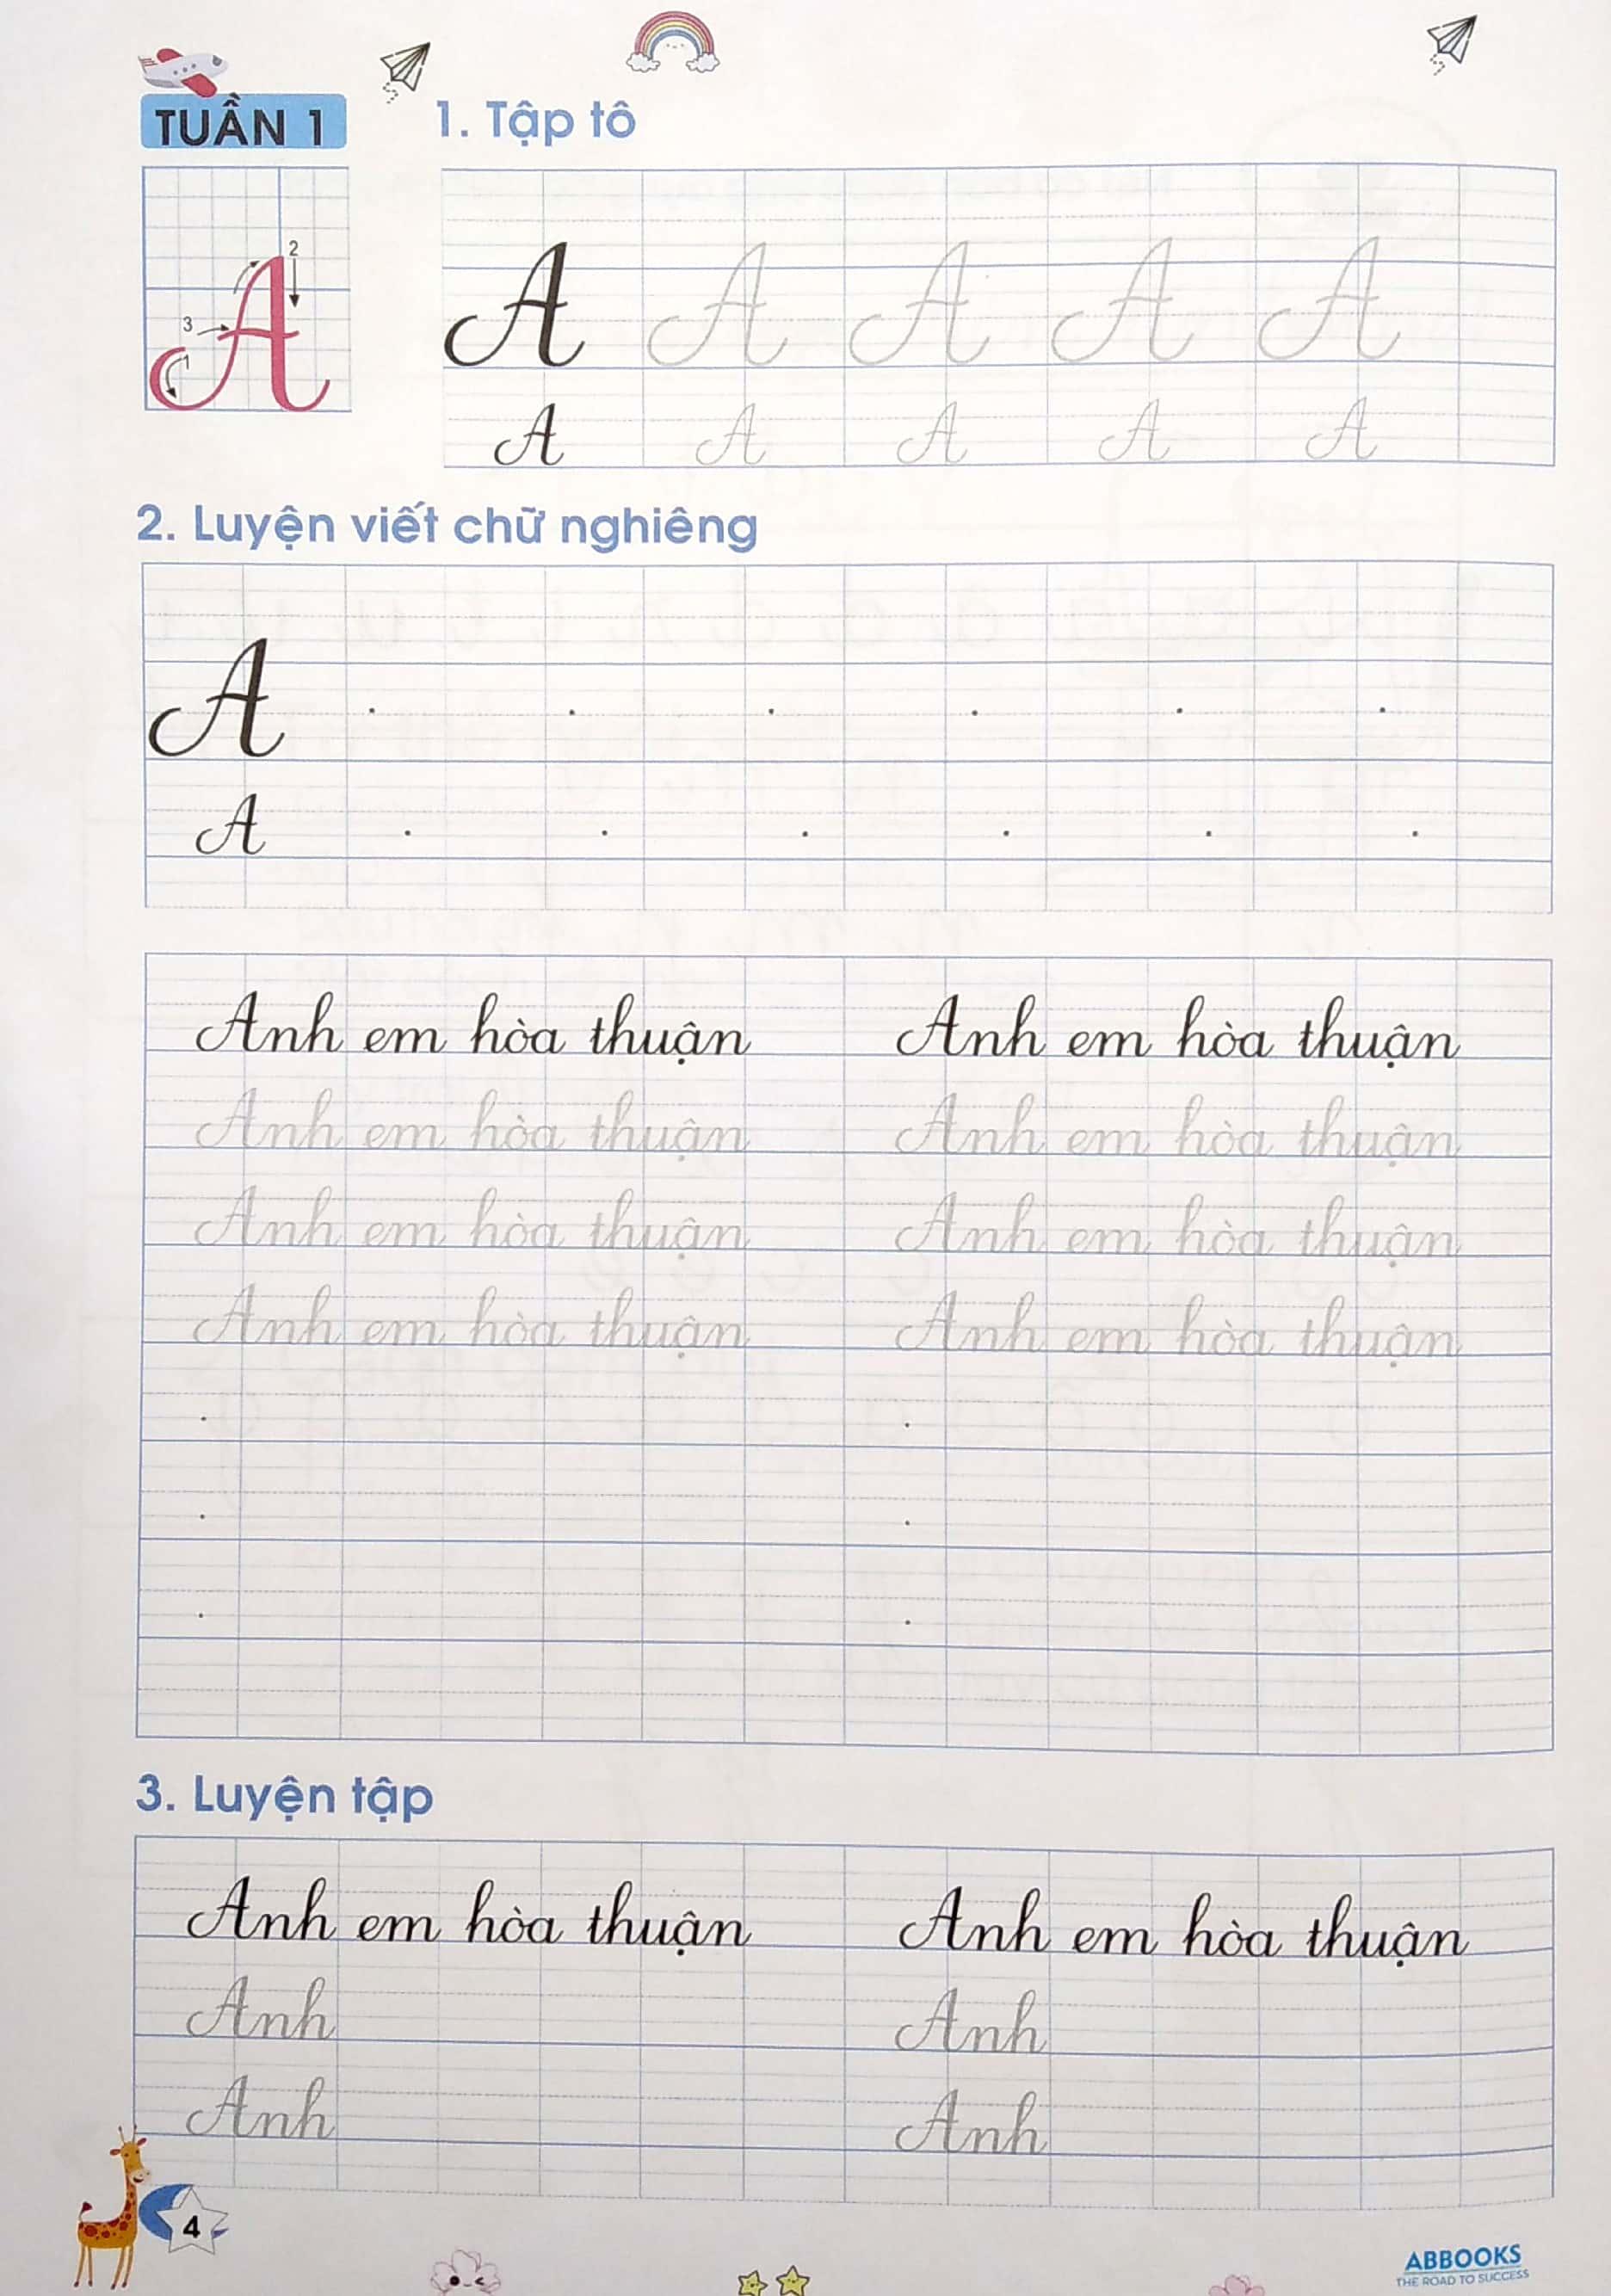 TUẦN 1
1. Tập tô
2
3
1
A A A A A
A A A A A
2. Luyện viết chữ nghiêng
A
A
Anh em hòa thuận Anh em hòa thuận
Anh em hòa thuận Anh em hòa thuận
Anh em hòa thuận Anh em hòa thuận
Anh em hòa thuận Anh em hòa thuận
3. Luyện tập
Anh em hòa thuận Anh em hòa thuận
Anh Anh
Anh Anh
4
ABBOOKS
THE ROAD TO SUCCESS